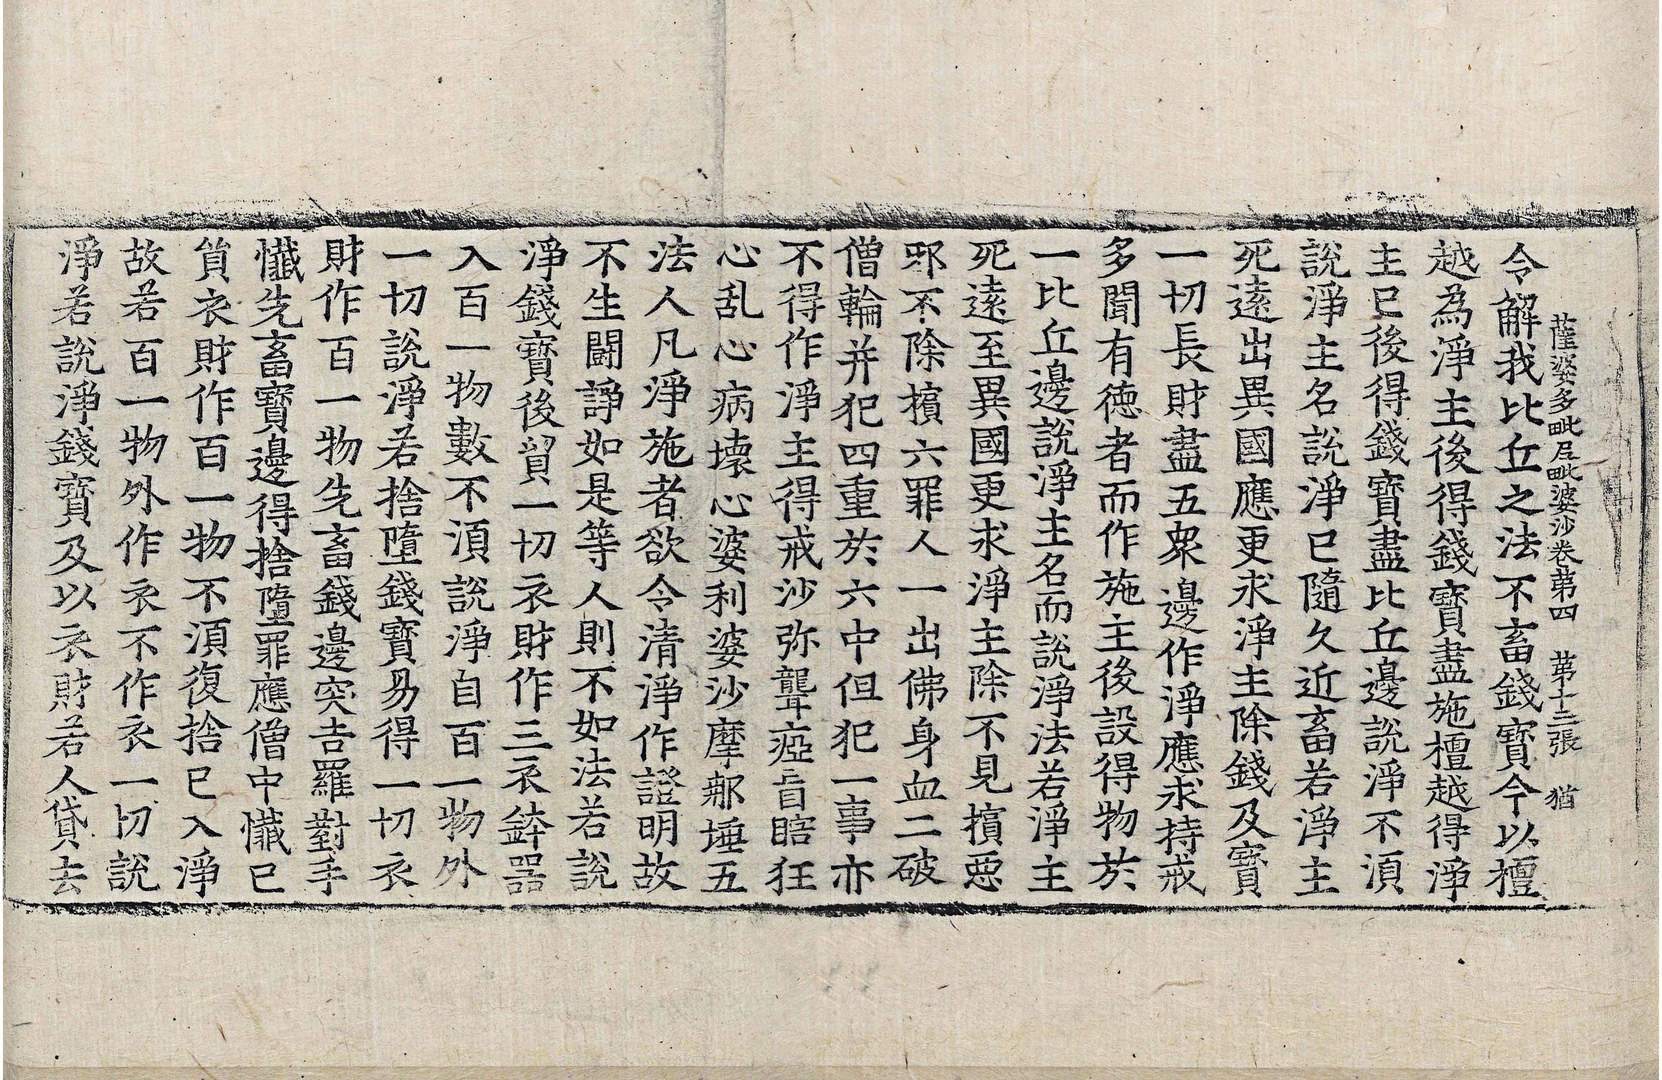 薩婆多毗尼毗婆沙卷第四　第十三張　猶
令解我比丘之法不畜錢寶今以檀
越為淨主後得錢寶盡施檀越得淨
主已後得錢寶盡比丘邊說淨不湏
說淨主名說淨已隨久近畜若淨主
死遠出異國應更求淨主除錢及寶
一切長財盡五衆邊作淨應求持戒
多聞有德者而作施主後設得物於
一比丘邊說淨主名而說淨法若淨主
死遠至異國更求淨主除不見擯惡
邪不除擯六罪人一出佛身血二破
僧輪并犯四重於六中但犯一事亦
不得作淨主得戒沙弥聾瘂盲瞎狂
心乱心病壞心婆利婆沙摩那埵五
法人凡淨施者欲令清淨作證明故
不生鬪諍如是等人則不如法若說
淨錢寶後貿一切衣財作三衣鉢器
入百一物數不湏說淨自百一物外
一切說淨若捨墮錢寶易得一切衣
財作百一物先畜錢邊突吉羅對手
懺先畜寶邊得捨墮罪應僧中懺已
貿衣財作百一物不湏復捨已入淨
故若百一物外作衣不作衣一切說
淨若說淨錢寶及以衣財若人貸去